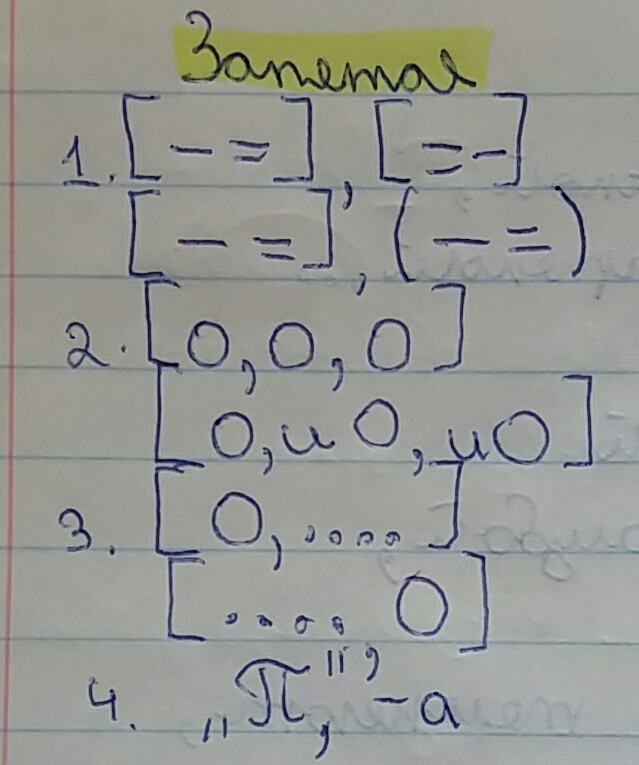 Запетая
1. [ – = ], [ = – ]
[ – = ], ( – = )
2. [ О, О, О ]
[ О, и О, и О ]
3. [ О, .... ]
[ ...., О ]
4. „П", – а